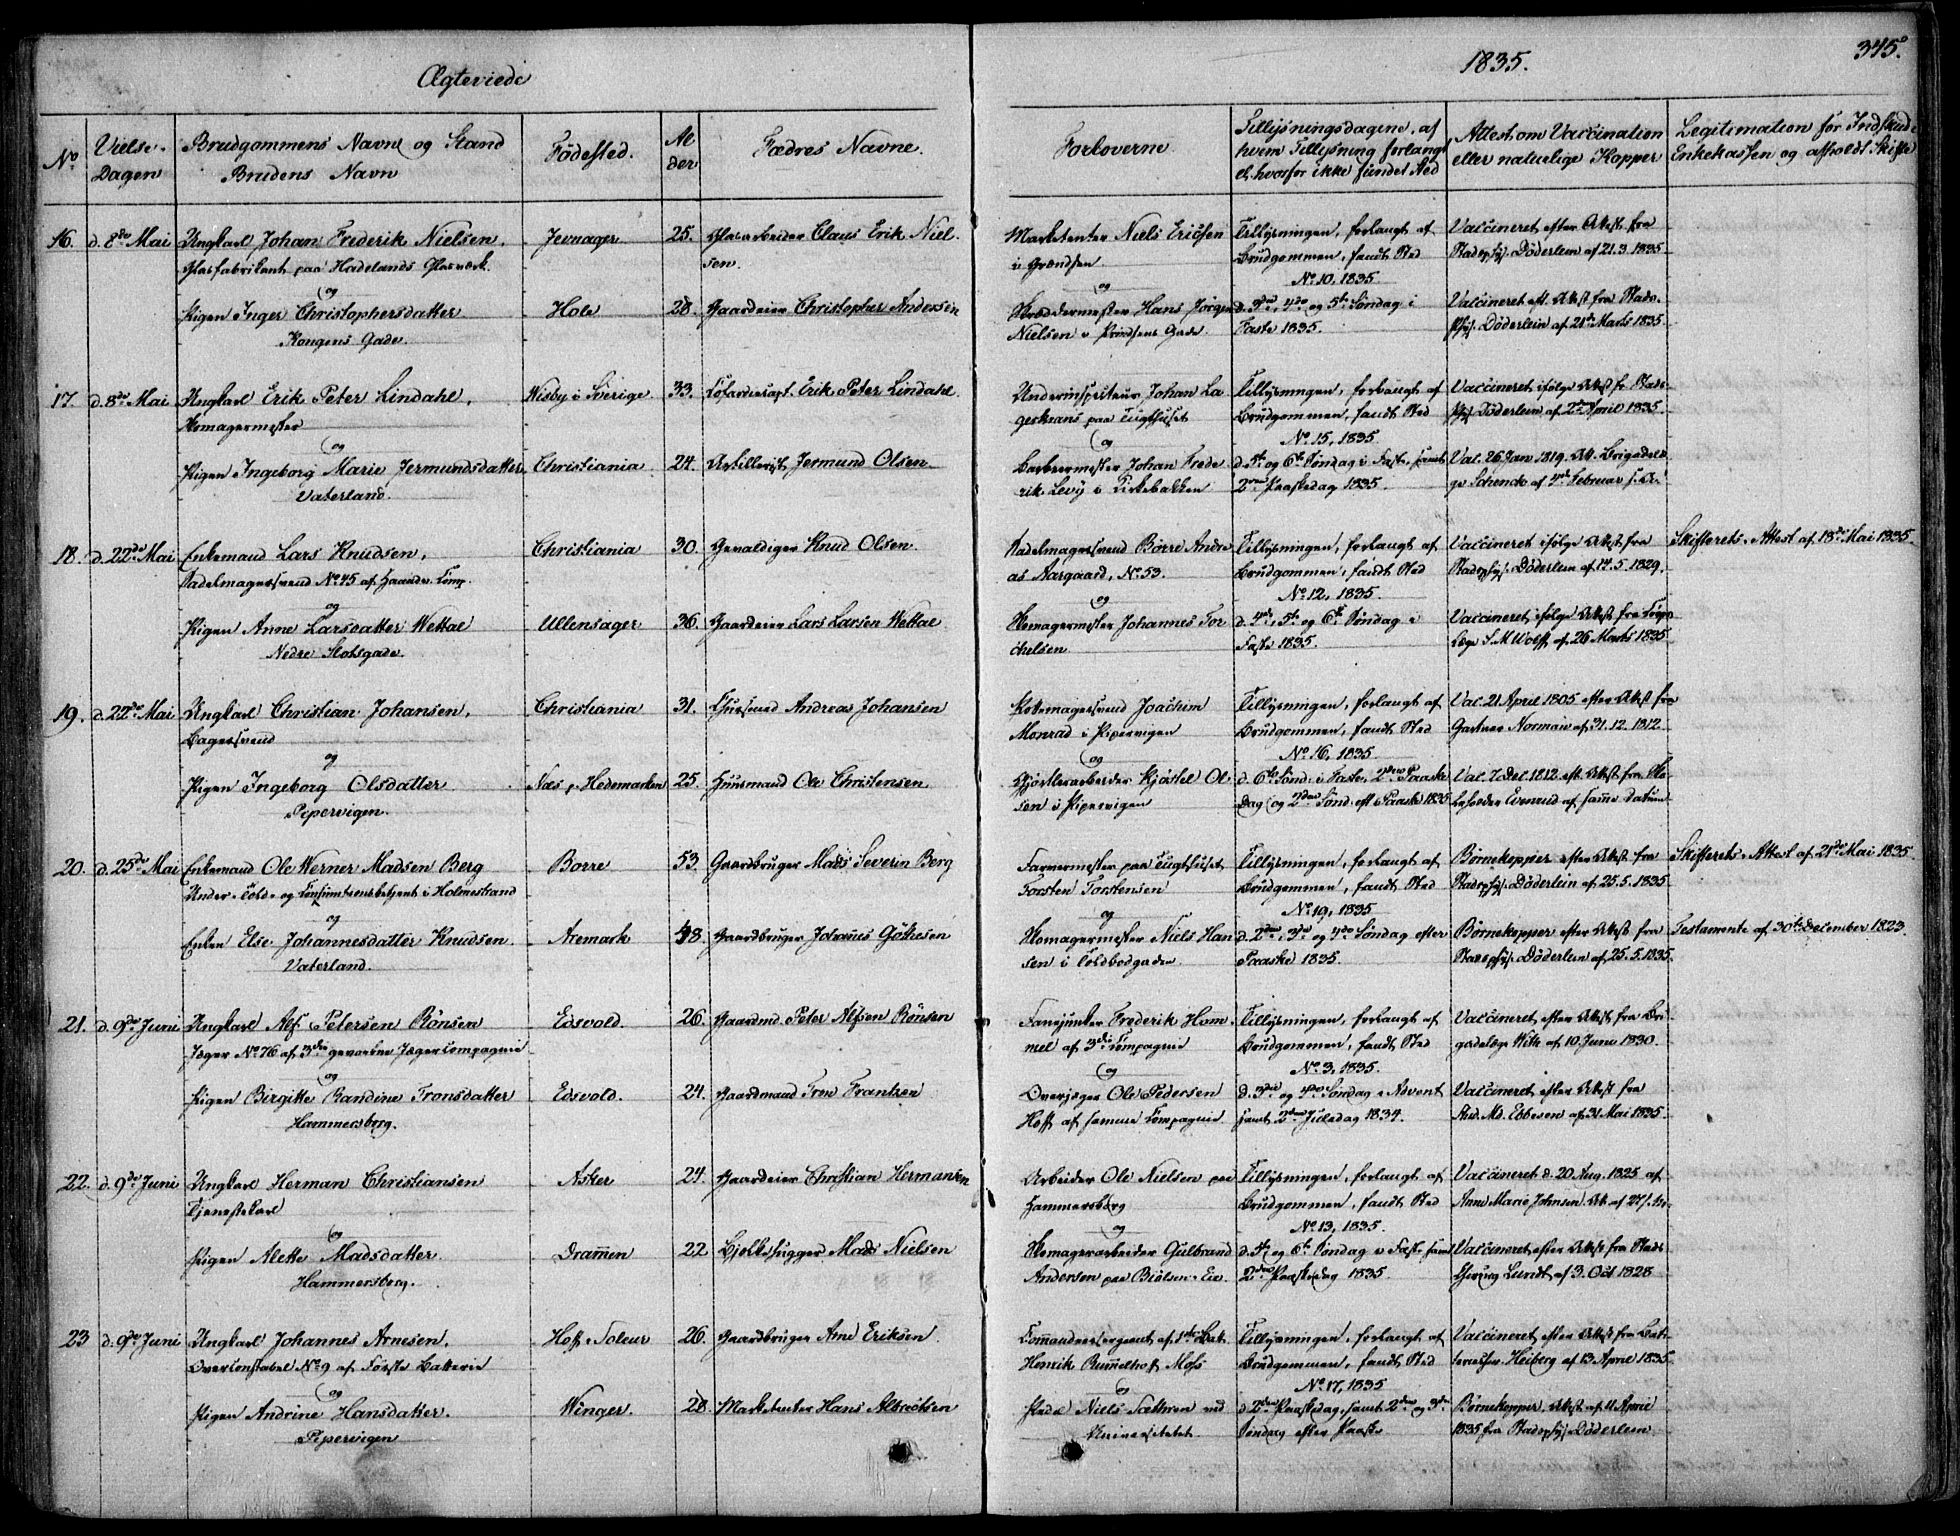 Ægteviede
1835.
345.
No
Vielse-
Dagen
Brudgommens Navn og Stand
Brudens Navn
Fødested.
Al
der
Fædres Navne.
Forloverne
Tillysningsdagene, af
hvem Tillysning forlangt
el. hvorfor ikke fundet Sted
Attest om Vaccination
eller naturlige Kopper
Legitimation for Indskud i
Enkekassen og afholdt Skifte
16. d. 8de Mai Ungkarl Johan Frederik Nielsen, Jevnager 25. Glasarbeider Claus Erik Niel-
Glasfabrikant paa Hadelands Glasværk. sen.
og
Pigen Inger Christophersdatter Hole 28. Gaardeier Christopher Andersen
Kongens Gade.
Marketenter Niels Ericsen Tillysningen, forlangt af Vaccineret efter Attest fra
i Grændsen Brudgommen, fandt Sted Stadsphys. Döderlein af 21.3.1835
og No 10, 1835
Skrædermester Hans Jørgen d. 3die, 4de og 5te Søndag i Vaccineret eft. Attest fra Stads-
Nielsen i Prindsens Gade Faste 1835. phys. Döderlein af 21de Marts 1835
17. d. 8de Mai Ungkarl Erik Peter Lindahl, Wisby i Sverige 33. Cofardicapt. Erik Peter Lindahl
Skomagermester
og
Pigen Ingeborg Marie Jermundsdatter Christiania 24. Artillerist Jermund Olsen
Vaterland.
Underinspecteur Johan La Tillysningen, forlangt af Vaccineret ifølge Attest fr. Stads-
gerkrans paa Tugthuset Brudgommen, fandt Sted phys. Döderlein af 2den April 1835.
og No 15, 1835
Barbeermester Johan Frede d. 5te og 6te Søndag i Faste, samt Val. 26 Jan 1819. Att. Brigadelæ
rik Levy i Kirkebakken 2den Paaskedag 1835. ge Schenck af 4de Februar s. A.
18. d. 22de Mai Enkemand Lars Knudsen, Christiania 30. Gevaldiger Knud Olsen
Sadelmagersvend No 45 af Haandv. Comp.
og
Pigen Anne Larsdatter Wettal Ullensager 36. Gaardeier Lars Larsen Wettal
Nedre Slotsgade.
Sadelmagersvend Börre Andre Tillysningen, forlangt af Vaccineret ifølge Attest fra Skifterets Attest af 18de Mai 1835.
as Aargaard, No 53. Brudgommen, fandt Sted Stadsphys. Döderlein af 14.5.1829.
og No 12, 1835
Skomagermester Johannes Tor d. 4de, 5te og 6te Søndag i Vaccineret, ifølge Attest fra Corps
chelsen Faste 1835. Læge S. M. Wolff af 26 Marts 1835
19. d. 22de Mai Ungkarl Christian Johansen, Christiania 31. Chursmed Andreas Johansen
Bagersvend
og
Pigen Ingeborg Olsdatter Næs p. Hedemarken 25. Huusmand Ole Christensen
Pipervigen.
Rebmagersvend Joachim Tillysningen, forlangt af Val. 21 April 1805 efter Attest fra
Monrad i Pipervigen Brudgommen, fandt Sted Gartner Normann af 31.12.1812
og No 16, 1835
Gjørtlerarbeider Kjøstel Ol d. 6te Sønd. i Faste, 2den Paaske Val. 7 Dec. 1812 eft. Attest fra
sen i Pipervigen Dag og 2den Sønd. eft. Paaske 1835 Evenrud af samme Datum
20. d. 25de Mai Enkemand Ole Werner Madsen Berg Borre 53. Gaardbruger Mads Severin Berg
Under-Told- og Consumtionsbetjent i Holmestrand
og
Enken Else Johannesdatter Knudsen Aremark 48. Gaardbruger Johannes Götesen
Vaterland.
Farvermester paa Tugthuset Tillysningen, forlangt af Børnekopper efter Attest fra Skifterets Attest af 21de Mai 1835.
Torsten Torstensen Brudgommen, fandt Sted Stadsphys. Döderlein af 25.5.1835
og No 19, 1835
Skomagermester Niels Han d. 2den, 3die og 4de Søndag efter Børnekopper efter Attest fra Testamente af 30te December 1823.
sen i Toldbodgaden Paaske 1835. Stadsphys. Döderlein af 25.5.1835.
21. d. 9de Juni Ungkarl Alf Petersen Rönsen Edsvold. 26. Gaardmd. Peter Alfsen Rönsen
Jæger No 76 af 3die gevorbne Jægercompagnie
og
Pigen Birgitte Randine Tronsdatter Edsvold. 24. Gaardmand Tron Frantzen
Hammersborg.
Fanejunker Frederik Hom- Tillysningen, forlangt af Vaccineret efter Attest fra Bri
mel af 3die Compagnie Brudgommen, fandt Sted gadelæge Witt af 10 Juni 1830.
og No 3, 1835.
Overjæger Ole Pedersen d. 3die og 4de Søndag i Advent Vaccineret efter Attest fra
Hoff af samme Compagnie samt 2den Juledag 1834. Stud. Md. Ebbesen af 31 Mai 1835.
22. d. 9de Juni Ungkarl Herman Christiansen Asker 24. Gaardeier Christian Hermansen
Tjenestekarl
og
Pigen Alette Madsdatter Drammen 22 Bjelkehugger Mads Nielsen
Hammersborg.
Arbeider Ole Nielsen paa Tillysningen, forlangt af Vaccineret d. 20 Aug. 1825 af
Hammersborg Brudgommen, fandt Sted Anne Marie Johnsen. Att. af 27/
og No 13, 1835.
Skomagerarbeider Gulbrand d. 5te og 6te Søndag i Faste samt Vaccineret efter Attest fra Stads
Andersen paa Bielsen-Eie 2den Paaskedag 1835 Chirurg Lundt af 3. Oct 1828
23 d. 9de Juni Ungkarl Johannes Arnesen, Hof i Soleur 26. Gaardbruger Arne Eriksen
Overconstabel No 9 af Første Batterie
og
Pigen Andrine Hansdatter. Winger. 28. Marketenter Hans Albretsen
Pipervigen
Commandeersergeant af 1ste Bat. Tillysningen, forlangt af Vaccineret efter Attest fra Bat-
Henrik Rummelhof Moss Brudgommen, fandt Sted Heiberg af 13 April 1835.
og No 17, 1835
Pedel Niels Sætren ved d. 2den Paaskedag, samt 2den og 3die Børnekopper, Attest af 11 April
Universitetet Søndag efter Paaske 1835 fra Stadsphys. Döderlein